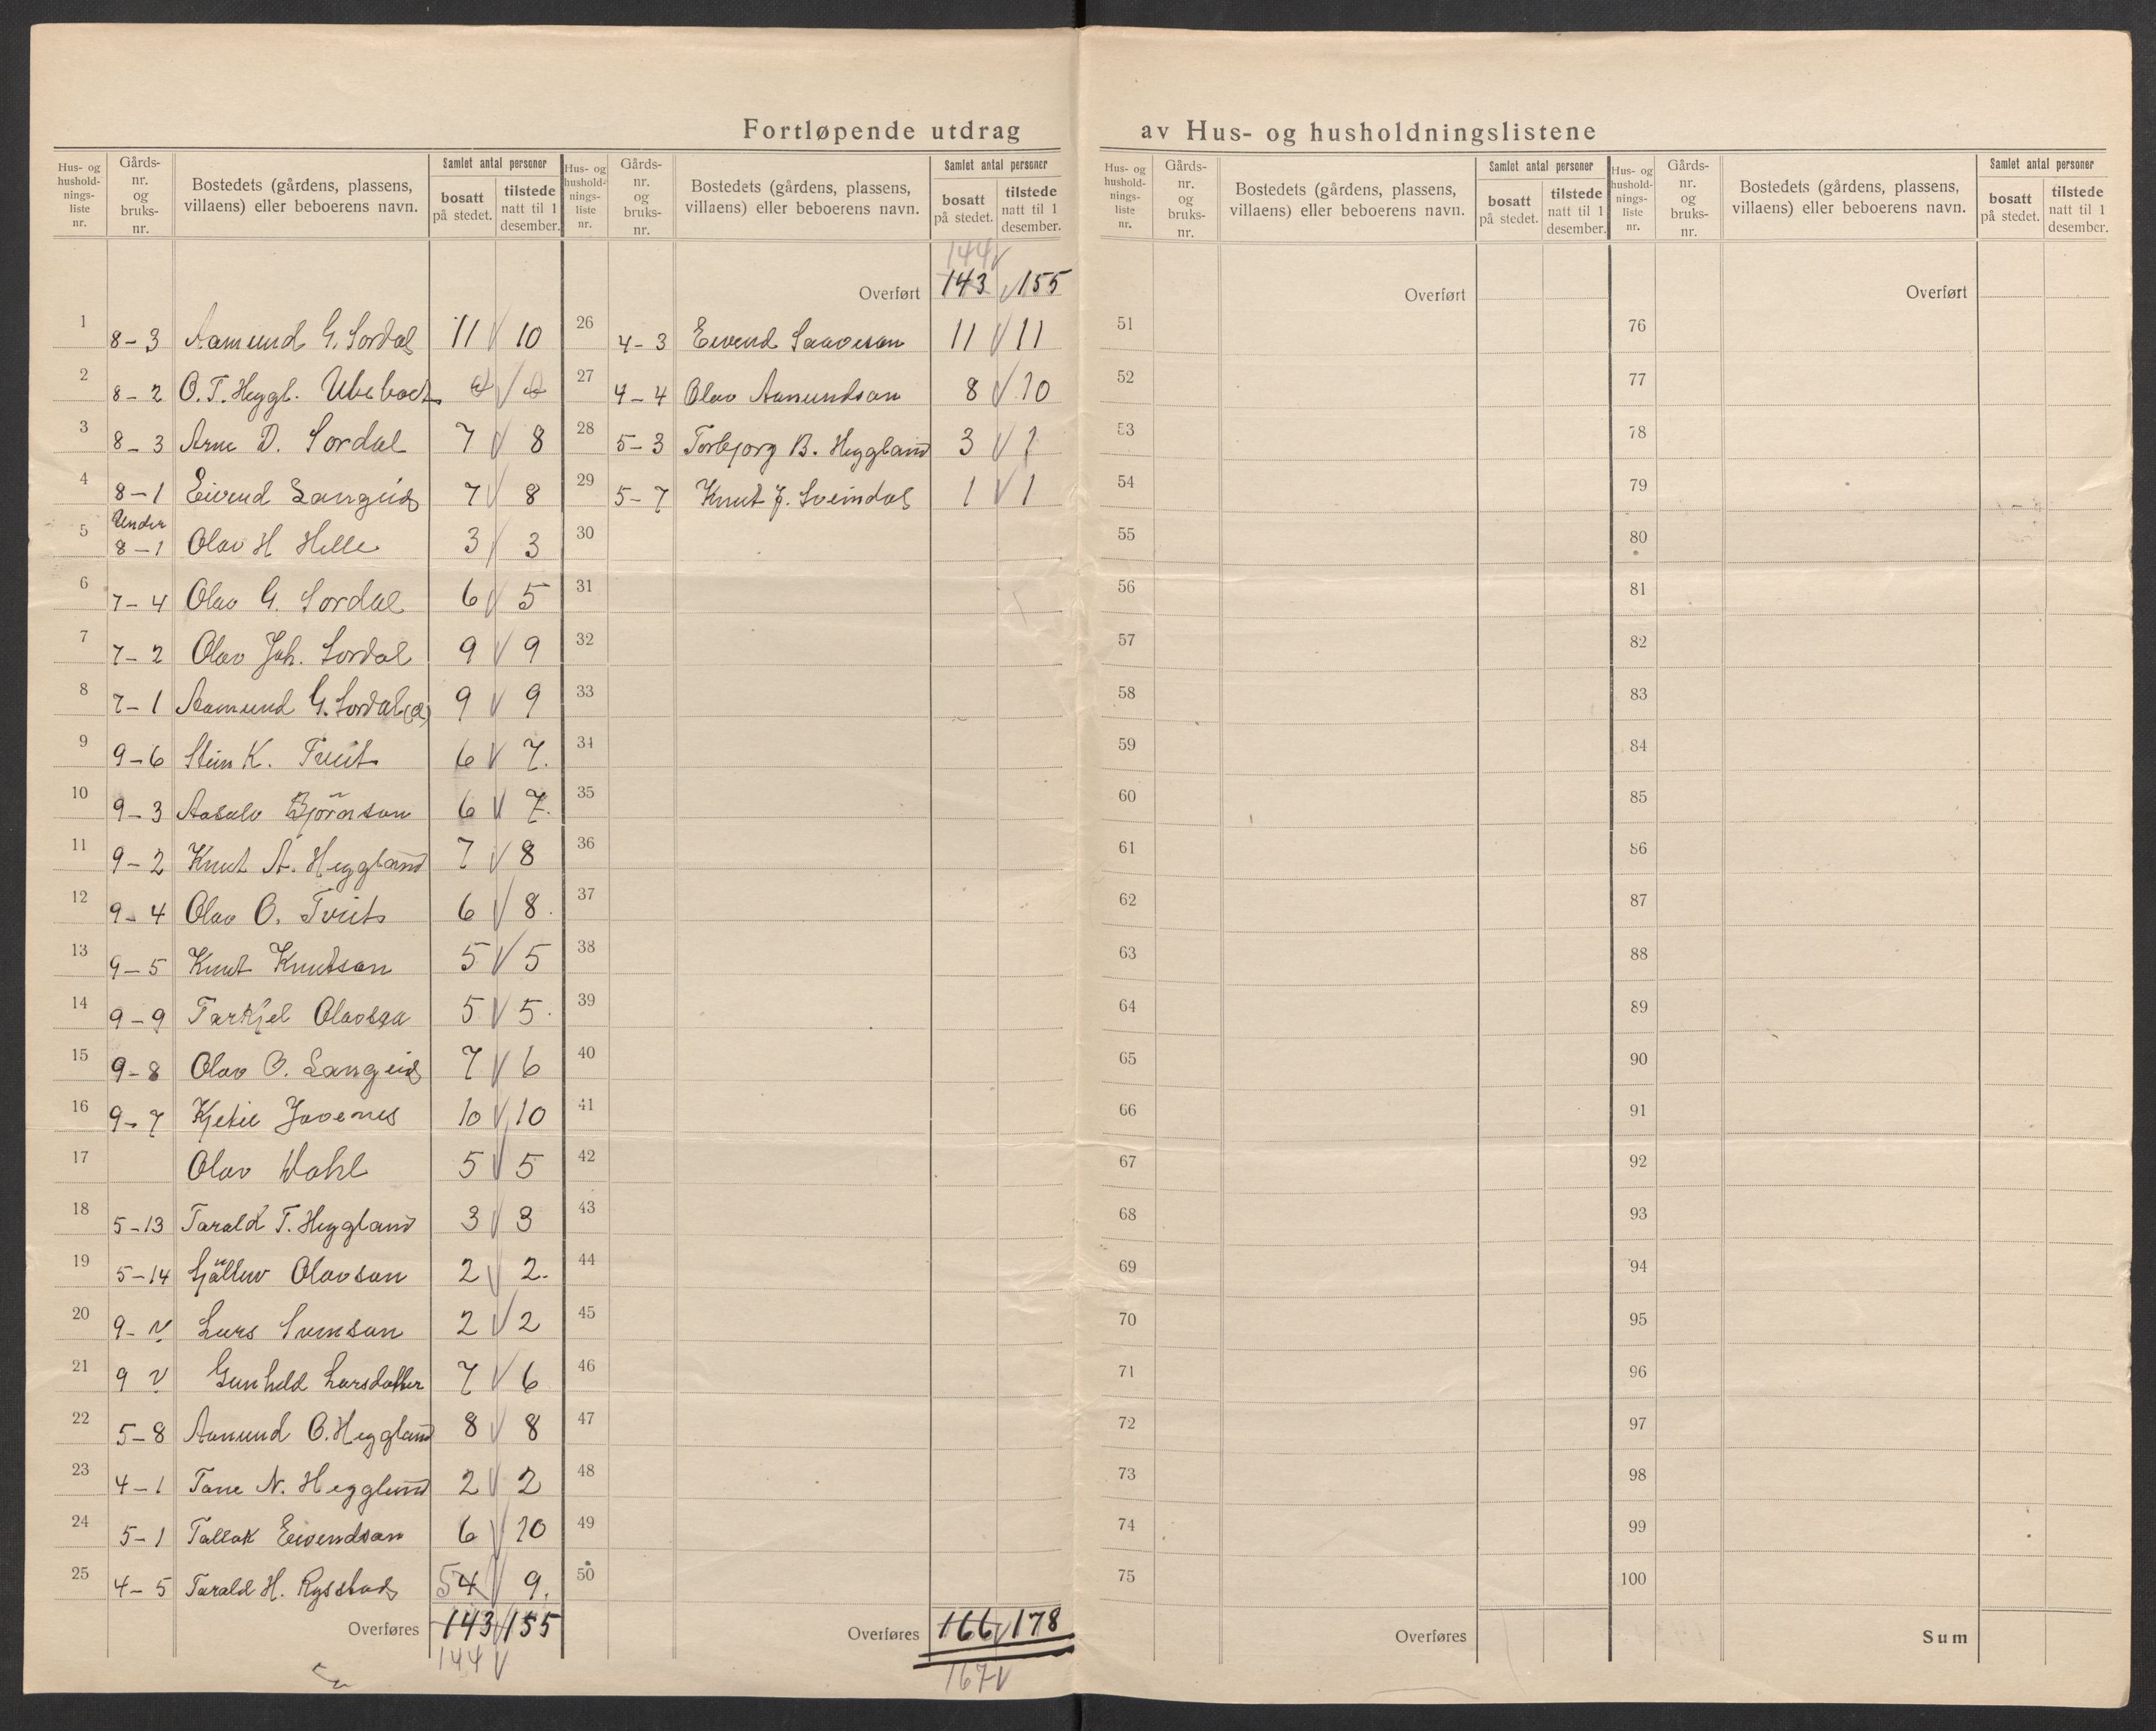 Fortløpende utdrag av Hus- og husholdningslistene
Hus- og hushold- nings- liste nr. | Gårds- nr. og bruks- nr. | Bostedets (gårdens, plassens, villaens) eller beboerens navn. | Samlet antal personer | bosatt på stedet. | tilstede natt til 1 desember.
Hus- og hushold- nings- liste nr. | Gårds- nr. og bruks- nr. | Bostedets (gårdens, plassens, villaens) eller beboerens navn. | Samlet antal personer | bosatt på stedet. | tilstede natt til 1 desember.
1 8-3 Aamund G. Sordal 11 10
2 8-2 O. T. Heggl. Ubebodt 0 0
3 8-3 Arne D. Sordal 7 8
4 8-1 Eivend Langeid 7 8
5 Under 8-1 Olav H Helle 3 3
6 7-4 Olav G. Sordal 6 5
7 7-2 Olav Joh. Sordal 9 9
8 7-1 Aamund G. Sordal 9 9
9 9-6 Stein K. Tveit 6 7.
10 9-3 Aasulv Bjørnson 6 7.
11 9-2 Knut A. Heggland 7 8
12 9-4 Olav O. Tveit 6 8.
13 9-5 Knut Knutson 5 5
14 9-9 Tarkjel Olavson 5 5.
15 9-8 Olav O. Langeid 7 6
16 9-7 Kjetil Jovenes 10 10
17 Olav Dahl 5 5
18 5-13 Tarald T. Heggland 3 3
19 5-14 Gjallew Olavson 2 2.
20 9- Lars Sveinson 2 2
21 9 Gunhild Larsdatter 7 6
22 5-8 Aanund O. Heggland 8 8
23 4-1 Tone N. Heggland 2 2
24 5-1 Tallak Eivendson 6 10
25 4-5 Tarald H. Rysstad 54 9.
Overføres 143 155
144
144
Overført 143 155
26 4-3 Eivend Saaveson 11 11
27 4-4 Olav Aanundson 8 10
28 5-3 Torbjorg B. Heggland 3 1
29 5-7 Knut J. Sveindal 1 1
30
31
32
33
34
35
36
37
38
39
40
41
42
43
44
45
46
47
48
49
50
Overføres 166 178
167
Hus- og hushold- nings- liste nr. | Gårds- nr. og bruks- nr. | Bostedets (gårdens, plassens, villaens) eller beboerens navn. | Samlet antal personer | bosatt på stedet. | tilstede natt til 1 desember.
Overført
51
52
53
54
55
56
57
58
59
60
61
62
63
64
65
66
67
68
69
70
71
72
73
74
75
Overføres
Hus- og hushold- nings- liste nr. | Gårds- nr. og bruks- nr. | Bostedets (gårdens, plassens, villaens) eller beboerens navn. | Samlet antal personer | bosatt på stedet. | tilstede natt til 1 desember.
Overført
76
77
78
79
80
81
82
83
84
85
86
87
88
89
90
91
92
93
94
95
96
97
98
99
100
Sum